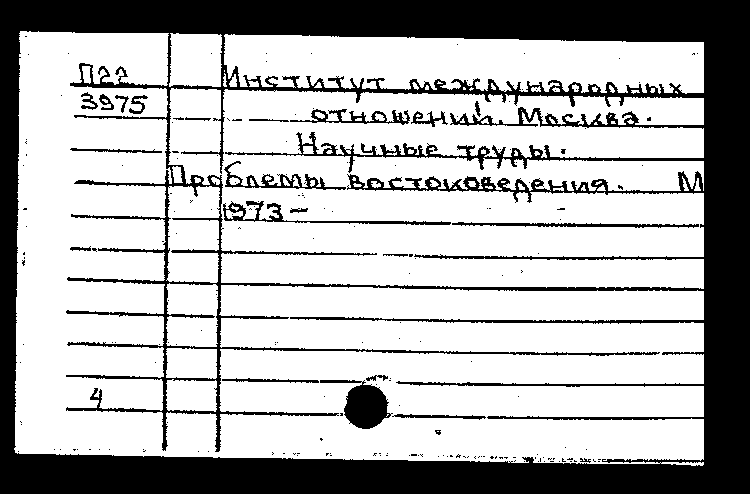 П22 Институт международных
3975 отношений. Москва.
Научные труды.
Проблемы востоковедения. М
1973-
4